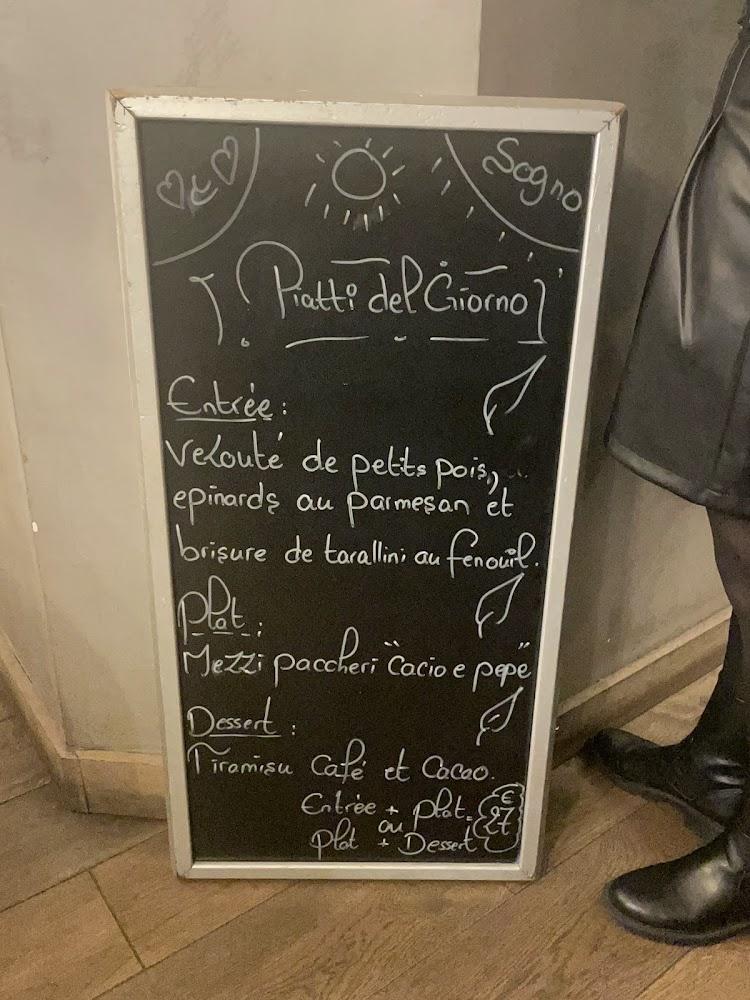 Sogno
Piatti del Giorno
Entrée :
Velouté de petits pois,
epinards au parmesan et
brisure de tarallini au fenouil.
Plat :
Mezzi paccheri "Cacio e pepe"
Dessert :
Tiramisu Café et Cacao.
Entrée + plat = € 27
ou
plat + Dessert